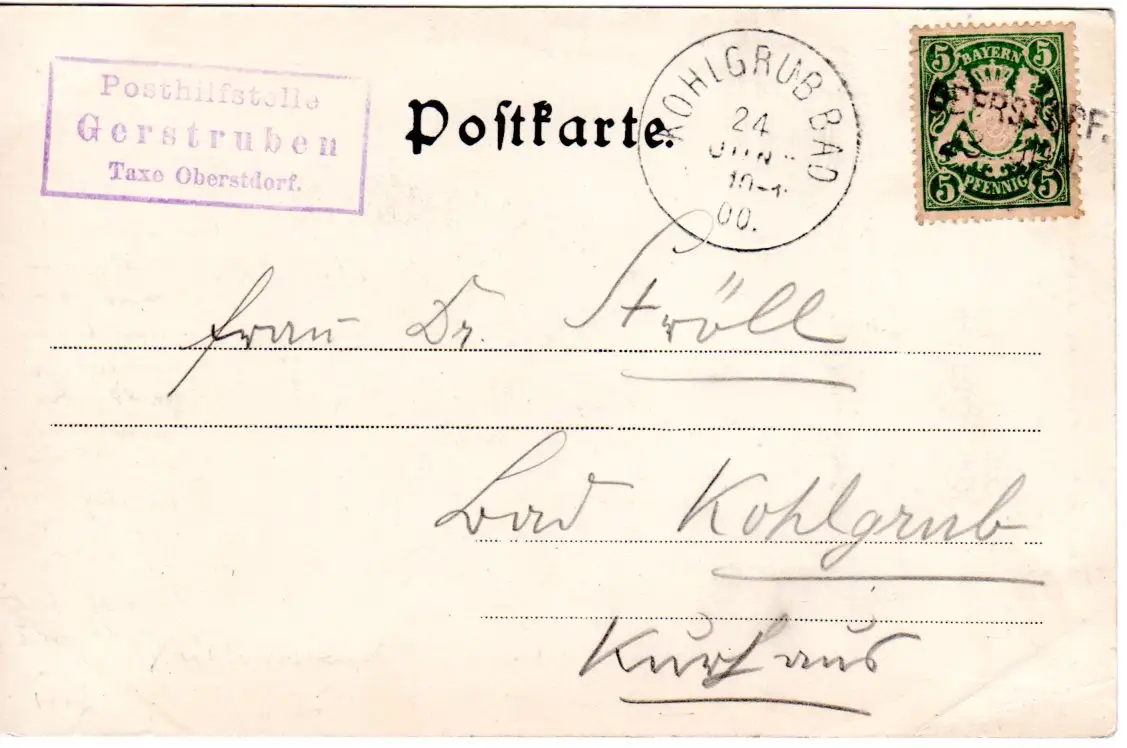 Posthilfstelle
Gerstruben
Taxe Oberstdorf.
Postkarte.
KOHLGRUB BAD
24
JUN.
00.
5 BAYERN 5
5 PFENNIG 5
Frau Dr. Ströll
Bad Kohlgrub
Kurhaus